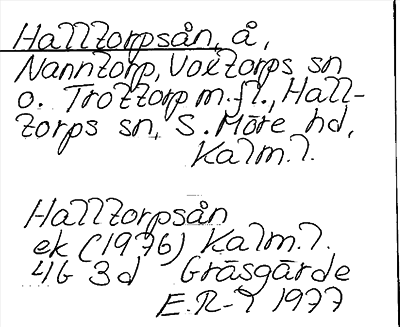 Halltorpsån, å,
Nanntorp, Voxtorps sn
o. Trottorp m.fl., Hall-
torps sn, S. Möre hd,
Kalm.l.
Halltorpsån
ek (1976) Kalm.l.
4G 3d Gräsgärde
E.R-T 1977